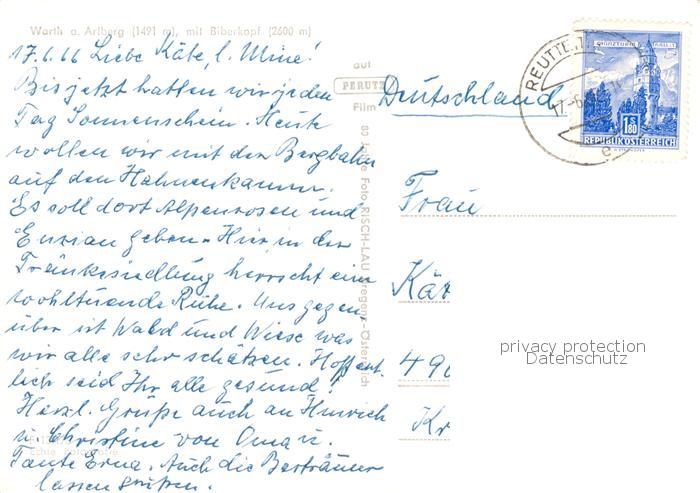 Warth a. Arlberg (1491 m), mit Biberkopf (2600 m)
17.6.66 Liebe Käte, l. Mine!
Bis jetzt hatten wir jeden
Tag Sonnenschein. Heute
wollen wir mit der Bergbahn
auf den Hahnenkamm.
Es soll dort Alpenrosen und
Enzian geben. Hier in der
herrscht eine
wohltuende Ruhe. Uns gegen,
über ist Wald und Wiese was
wir alle sehr schätzen. Hoffent,
lich seid Ihr alle gesund!
Herzl. Grüße auch an Hinrich
u. Christine von Oma u.
Tante Erna. Auch die
lassen grüßen.
Echte Fotografie
auf
PERUTZ
Film
Foto RISCH-LAU Bregenz-Österreich
Deutschland
REUTTE, TI
17.-6.
e
1.80
REPUBLIK ÖSTERREICH
Frau
Kät
490
Kr
privacy protection
Datenschutz